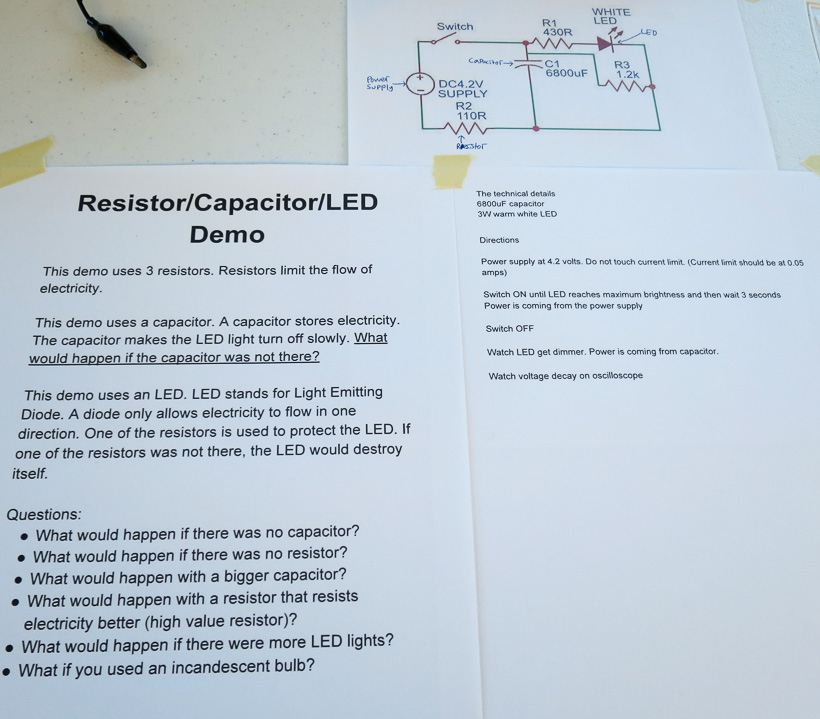 Switch
R1
430R
WHITE
LED
LED
Capacitor
C1
6800uF
R3
1.2k
Power
Supply
+
−
DC4.2V
SUPPLY
R2
110R
Resistor
Resistor/Capacitor/LED
Demo
This demo uses 3 resistors. Resistors limit the flow of
electricity.
This demo uses a capacitor. A capacitor stores electricity.
The capacitor makes the LED light turn off slowly. What
would happen if the capacitor was not there?
This demo uses an LED. LED stands for Light Emitting
Diode. A diode only allows electricity to flow in one
direction. One of the resistors is used to protect the LED. If
one of the resistors was not there, the LED would destroy
itself.
Questions:
● What would happen if there was no capacitor?
● What would happen if there was no resistor?
● What would happen with a bigger capacitor?
● What would happen with a resistor that resists
electricity better (high value resistor)?
● What would happen if there were more LED lights?
● What if you used an incandescent bulb?
The technical details
6800uF capacitor
3W warm white LED
Directions
Power supply at 4.2 volts. Do not touch current limit. (Current limit should be at 0.05
amps)
Switch ON until LED reaches maximum brightness and then wait 3 seconds
Power is coming from the power supply
Switch OFF
Watch LED get dimmer. Power is coming from capacitor.
Watch voltage decay on oscilloscope